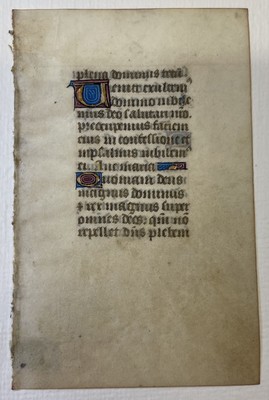 plena dominus tecu
Uenite exultem
domino iubile
mus deo salutari no.
preocupemus faciem
eius in confessione et
in psalmis iubilem
ei. Aue maria
Quoniam deus
magnus dominus
et rex magnus super
omnes deos: qm̄ nō
repellet dn̄s plebem